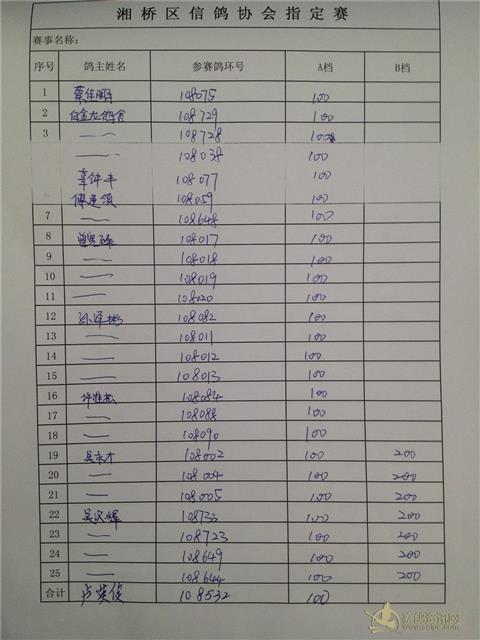 湘桥区信鸽协会指定赛
赛事名称:
序号 鸽主姓名 参赛鸽环号 A档 B档
1 蔡佳鹏 108075 100
2 108729 100
3 — 108728 100
— 108038 100
辜钟丰 108077 100
陈建领 108059 100
7 — 108648 100
8 108017 100
9 — 108018 100
10 — 108019 100
11 — 108020 100
12 孙泽彬 108082 100
13 — 108011 100
14 — 108012 100
15 — 108013 100
16 许雅松 108084 100
17 — 108088 100
18 — 108090 100
19 吴永才 108002 100 200
20 — 108004 100 200
21 — 108005 100 200
22 吴汉辉 108733 100 200
23 — 108723 100 200
24 — 108649 100 200
25 — 108644 100 200
合计 卢英俊 108532 100
赛鸽资讯网